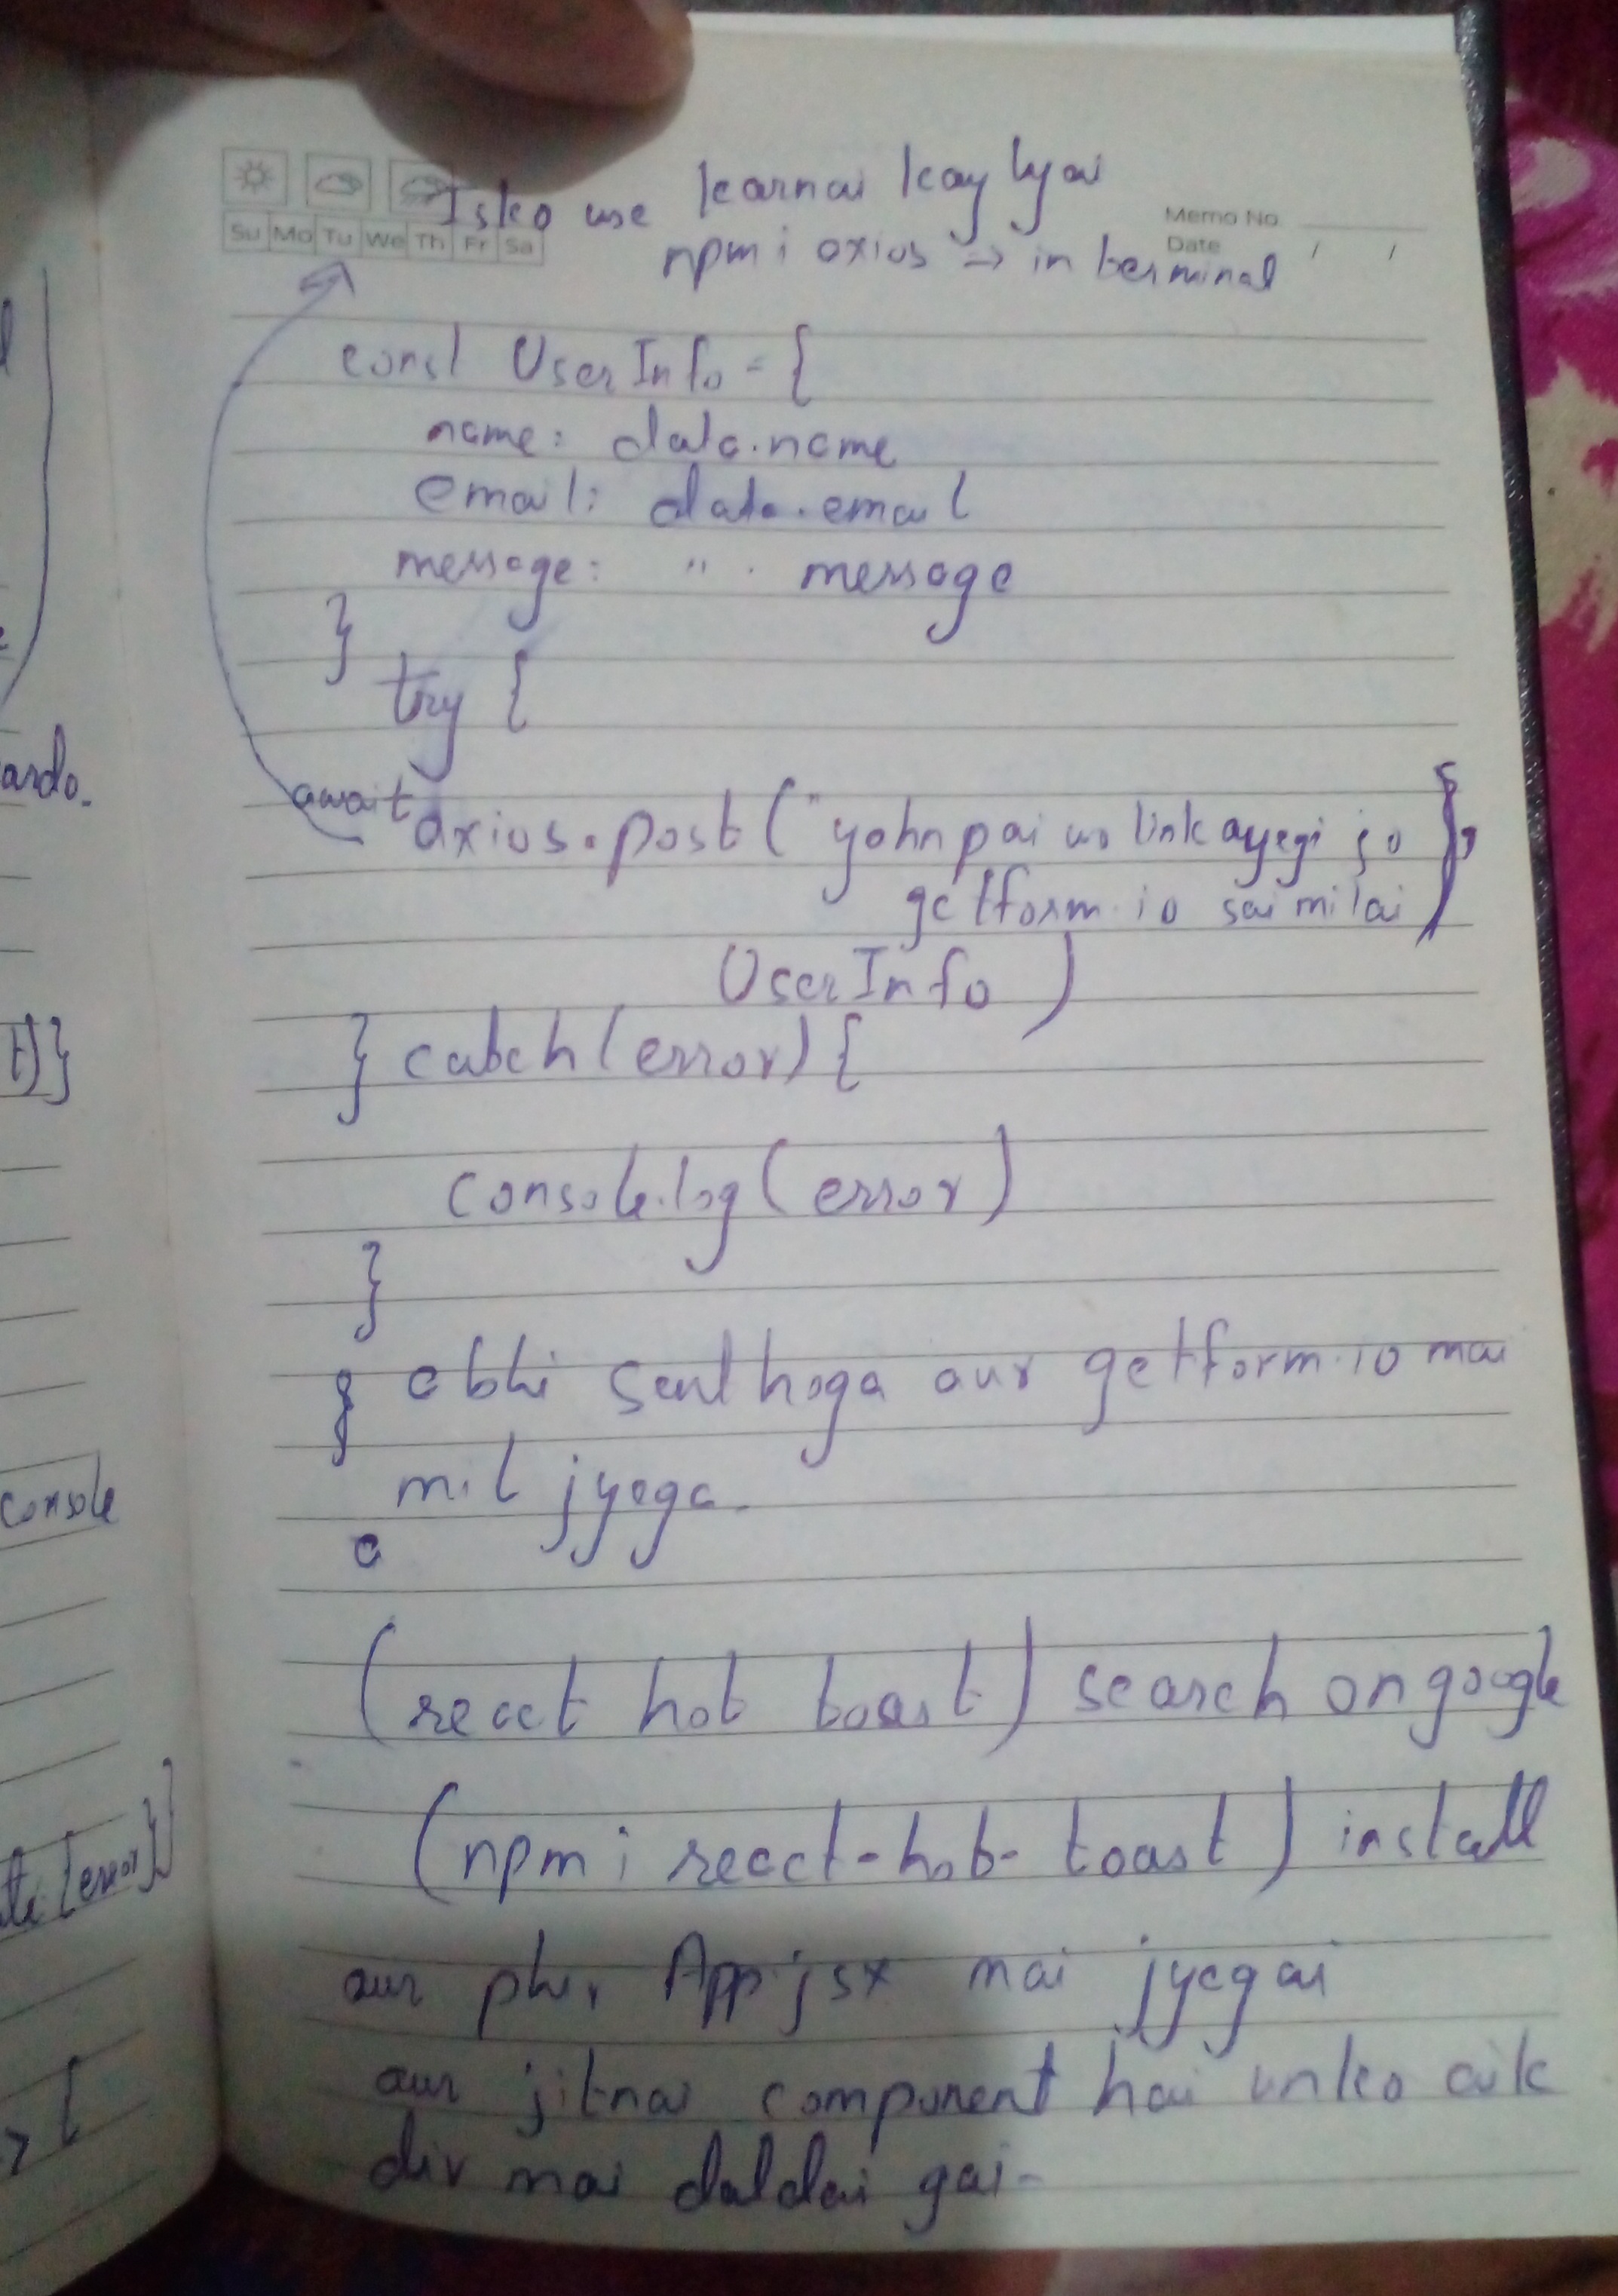 Isko use karnai kay lyai
Su Mo Tu We Th Fr Sa
Memo No.
Date / /
npm i axios → in terminal
const UserInfo = {
name: data.name
email: data.email
message: " . message
}
try {
await axios.post("yahn pai wo link ayegi jo
getform.io sai milai },
UserInfo )
} catch(error) {
console.log(error)
}
} abhi sent hoga aur getform.io mai
mil jyega.
a
(react hot toast) search on google
(npm i react-hot-toast) install
aur phir App.jsx mai jyegai
aur jitnai component hai unko aik
div mai daldai gai-
ardo.
t)}
console
[error]}